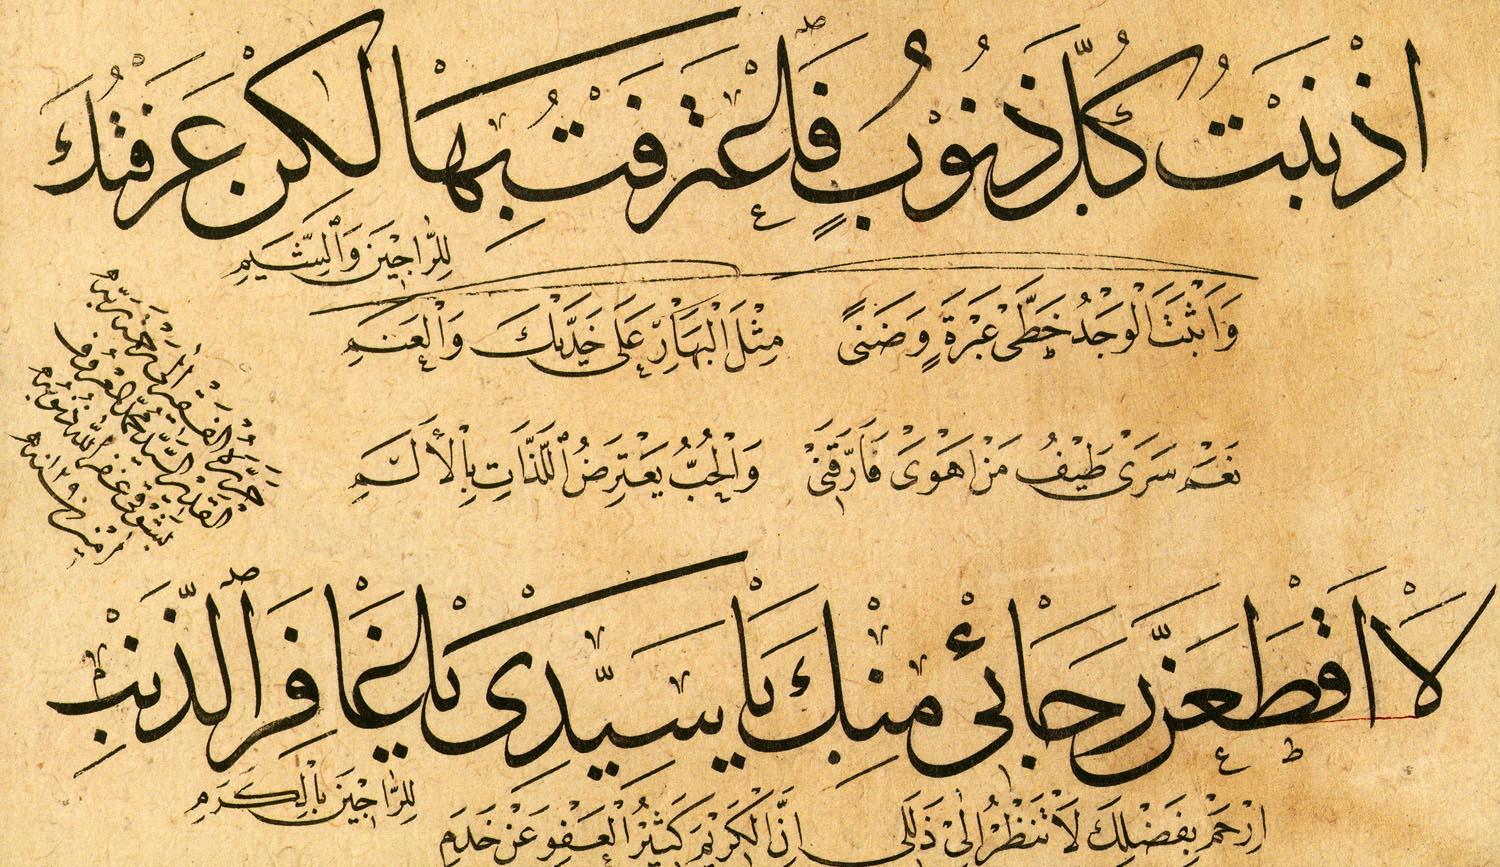 اَذْنَبْتُ كُلَّ ذُنُوبٍ فَاعْتَرَفْتُ بِهَا لٰكِنْ عَرَفْتُكَ
لِلرَّاجِينَ وَالشِّيَمِ
وَاَثْبَتَ الْوَجْدُ خَطَّىْ عَبْرَةٍ وَضَنًى مِثْلَ الْبَهَارِ عَلَى خَدَّيْكَ وَالْعَنَمِ
نَعَمْ سَرَى طَيْفُ مَنْ اَهْوَى فَاَرَّقَنِى وَالْحُبُّ يَعْتَرِضُ اللَّذَّاتِ بِالْاَلَمِ
لَا اَقْطَعَنَّ رَجَائِى مِنْكَ يَا سَيِّدِى يَا غَافِرَ الذَّنْبِ
لِلرَّاجِينَ بِالْكَرَمِ
اِرْحَمْ بِفَضْلِكَ لَا تَنْظُرْ اِلَى ذَلَلِى اِنَّ الْكَرِيمَ كَثِيرُ الْعَفْوِ عَنْ خَدَمِ